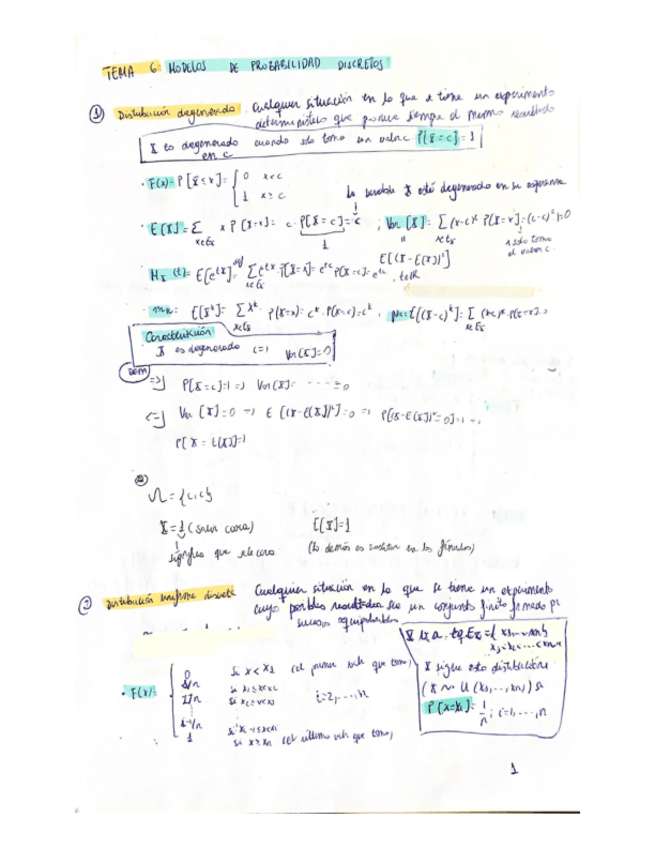 TEMA 6: MODELOS DE PROBABILIDAD DISCRETOS
① Distribución degenerada. Cualquier situación en la que se tiene un experimento
determinístico que posee siempre el mismo resultado
X es degenerado cuando solo toma un valor. P[X=c]=1
en c
· F(x)= P[X≤x]= { 0 x<c
1 x≥c
La variable X está degenerada en su esperanza
· E[X]= Σ x P[X=x]= c·P[X=c]=c ; Var[X]= Σ (x-c)² P[X=x]=(c-c)²·1=0
x∈Ex
1
x solo toma
el valor c.
E[(X-E(X))²]
M_X(t)= E[e^tX] = Σ e^tx P[X=x]= e^tc P[X=c]= e^tc, t∈R
· m_k= E[X^k]= Σ x^k · P(X=x)= c^k · P(X=c)=c^k , μ_k=E[(X-c)^k]= Σ (x-c)^k · P[X=x]=0
Caracterización
X es degenerado (=) Var[X]=0
DEM
=>] P[X=c]=1 => Var[X]= ---- =0
<=] Var[X]=0 => E[(X-E(X))²]=0 => P[(X-E(X))²=0]=1
P[X=E(X)]=1
Ω={c,c}
X=1 (salir cara) E[X]=1
significa que sale cara (Lo demás es sustituir en las fórmulas)
② Distribución uniforme discreta Cualquier situación en la que se tiene un experimento
cuyo posibles resultados sea un conjunto finito formado por
sucesos equiprobables
X v.a. tq Ex={x₁,...,xₙ}
x₁<x₂<...<xₙ
X sigue esta distribución
(X~U(x₁,...,xₙ)) si
P[X=xᵢ]= 1/n ; i=1,...,n
· F(x)= { 0 si x<x₁ (el primer valor que toma)
1/n si x₁≤x<x₂
2/n si x₂≤x<x₃ i=2,...,n
i-1/n si xᵢ₋₁≤x<xᵢ
1 si x≥xₙ (el último valor que toma)
1